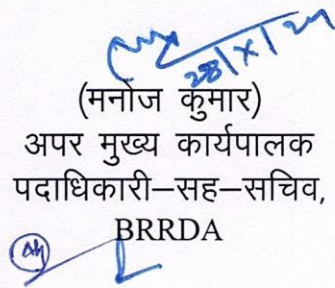 28/X/24
(मनोज कुमार)
अपर मुख्य कार्यपालक
पदाधिकारी–सह–सचिव,
BRRDA